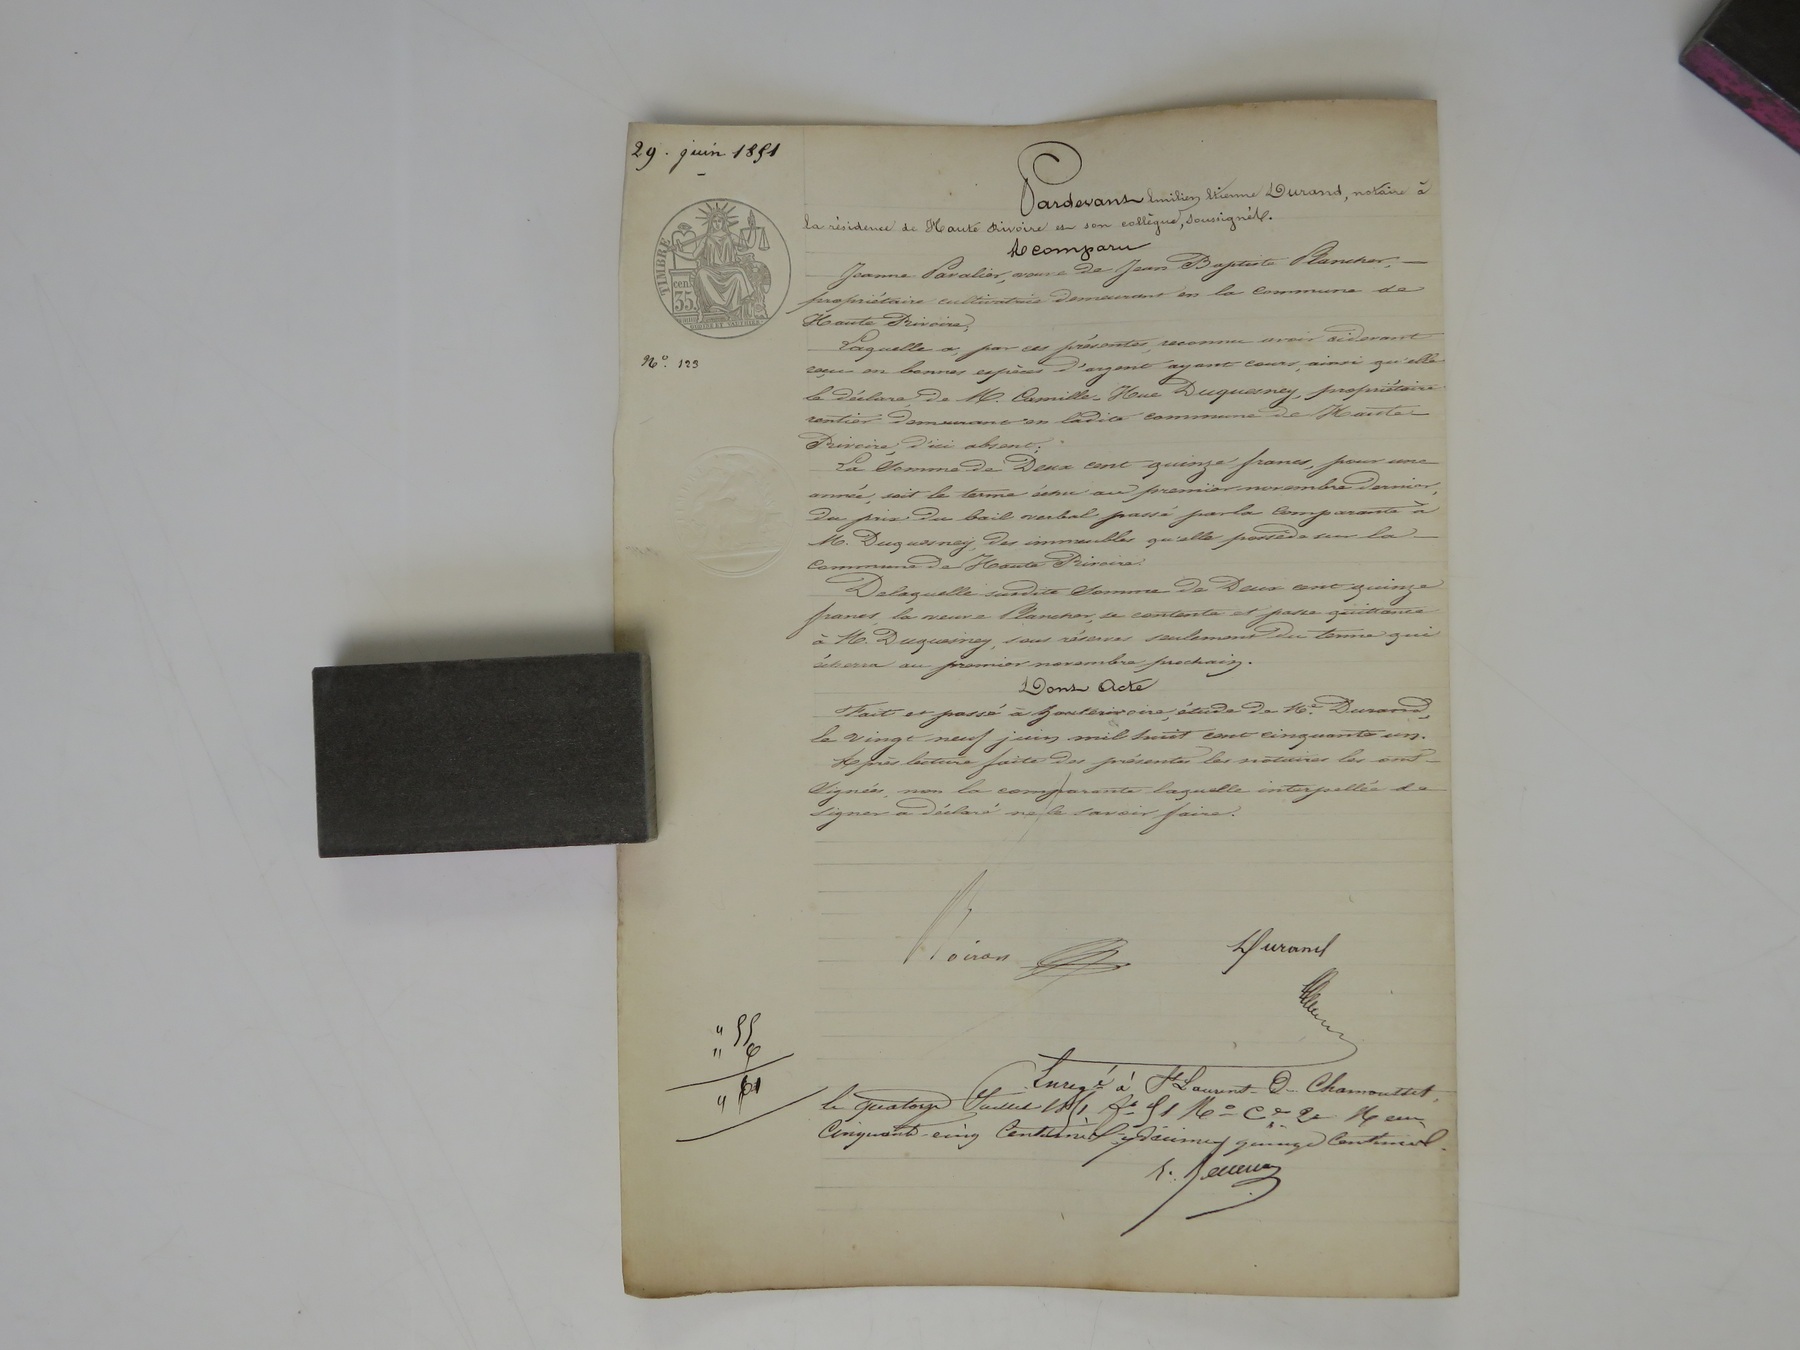 29. juin 1851
TIMBRE
35
cent
N.º 123
Pardevant Emilien Etienne Durand, notaire à
la résidence de Haute Rivoire et son collègue, soussignés.
A comparu
Jeanne Pavalier, veuve de Jean Baptiste Plancher,
propriétaire cultivatrice demeurant en la commune de
Haute Rivoire,
Laquelle a, par ces présentes, reconnu avoir cidevant
reçu en bonnes espèces d'argent ayant cours, ainsi qu'elle
le déclare de M. Camille Hue Duquesney, propriétaire
rentier demeurant en ladite commune de Haute
Rivoire, d'ici absent;
La Somme de Deux cent quinze francs, pour une
année, soit le terme échu au premier novembre dernier,
du prix du bail verbal passé par la comparante à
M. Duquesney, des immeubles qu'elle possède sur la
commune de Haute Rivoire.
De laquelle susdite Somme de Deux cent quinze
francs, la veuve Plancher, se contente et passe quittance
à M. Duquesney, sous réserve seulement du terme qui
écherra au premier novembre prochain.
Dont Acte
Fait et passé à hauterivoire, étude de Me. Durand,
le vingt neuf juin mil huit cent cinquante un.
Après lecture faite des présentes les notaires les ont
Signées, non la comparante laquelle interpellée de
signer a déclaré ne le savoir faire.
Durand
" 55
" 6
" 61
Enregé à St Laurent D Chamousset,
le quatorze Juillet 1851, fo 51 Ro Ce 2e Reçu
Cinquante-cinq Centimes, décimes quinze Centimes.